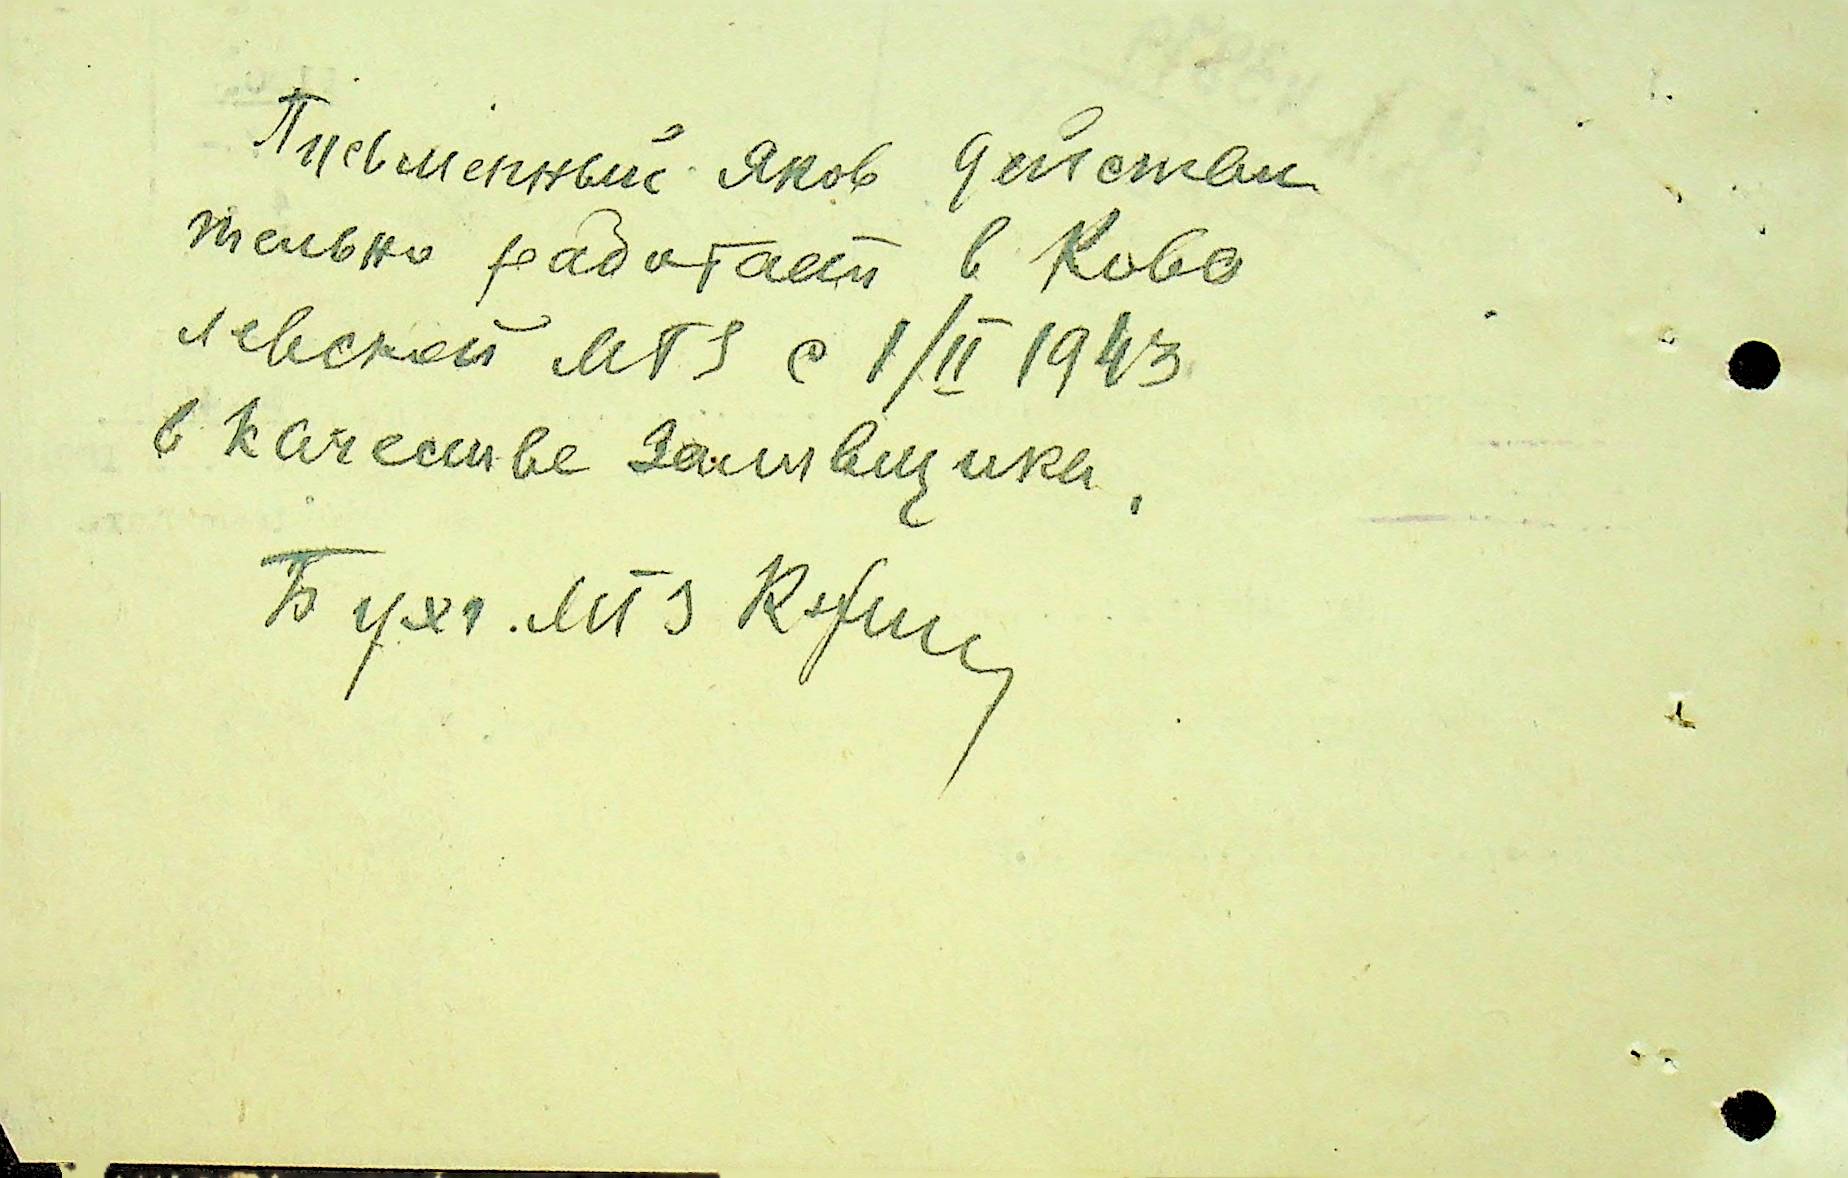 Письменный Яков действи
тельно работает в Кова
левской МТЗ с 1/II 1943
в качестве заливщика.
Бухг. МТЗ